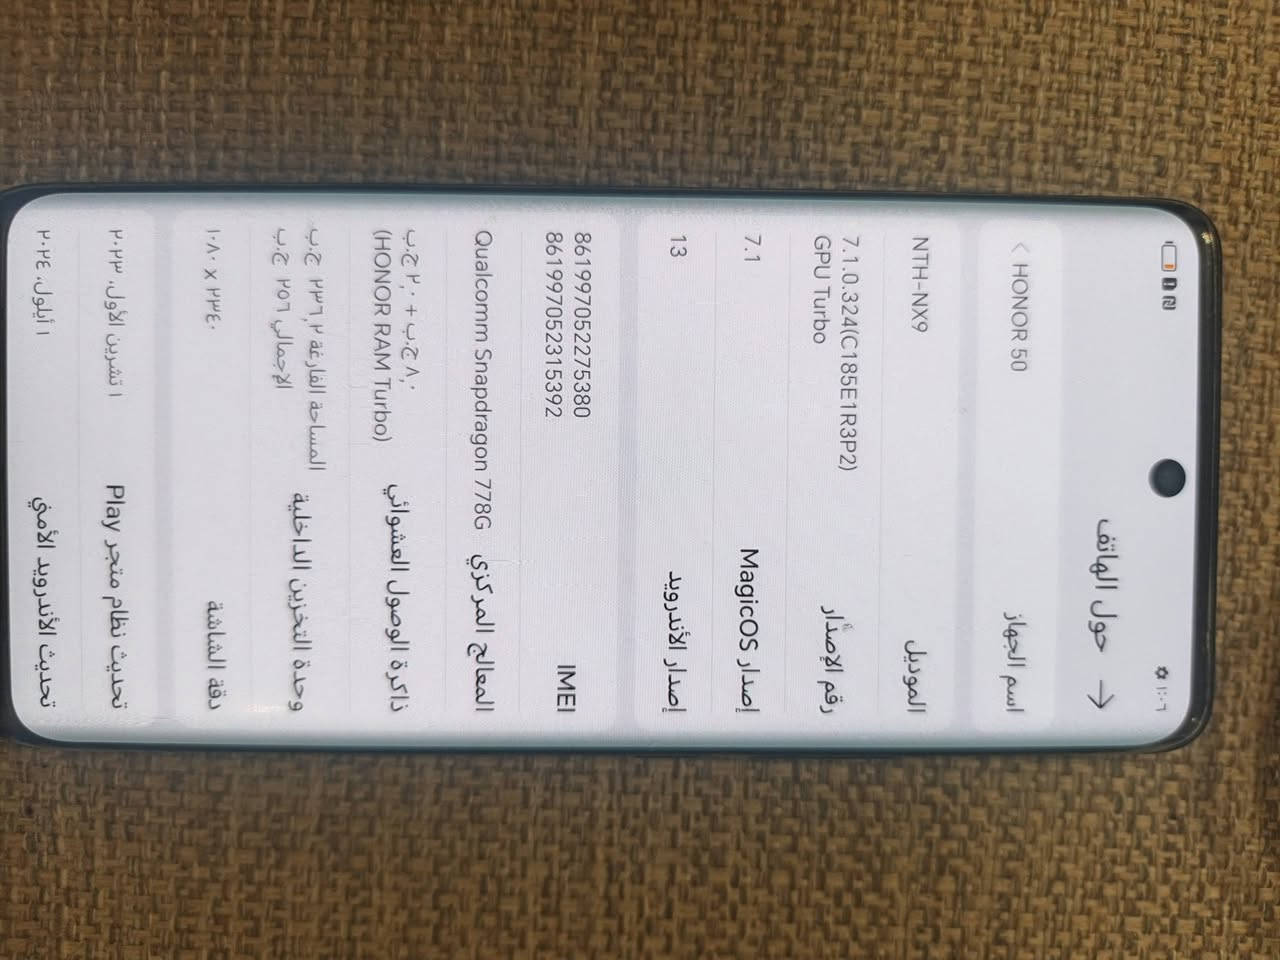 ١:٠٦
حول الهاتف
اسم الجهاز HONOR 50
الموديل NTH-NX9
رقم الإصدار 7.1.0.324(C185E1R3P2)
GPU Turbo
إصدار MagicOS 7.1
إصدار الأندرويد 13
IMEI 861997052275380
861997052315392
المعالج المركزي Qualcomm Snapdragon 778G
ذاكرة الوصول العشوائي ٨,٠ ج.ب + ٢,٠ ج.ب
(HONOR RAM Turbo)
وحدة التخزين الداخلية المساحة الفارغة ٢٣٦,٢ ج.ب
الإجمالي ٢٥٦ ج.ب
دقة الشاشة ١٠٨٠ x ٢٣٤٠
تحديث نظام متجر Play ١ تشرين الأول، ٢٠٢٣
تحديث الأندرويد الأمني ١ أيلول، ٢٠٢٤